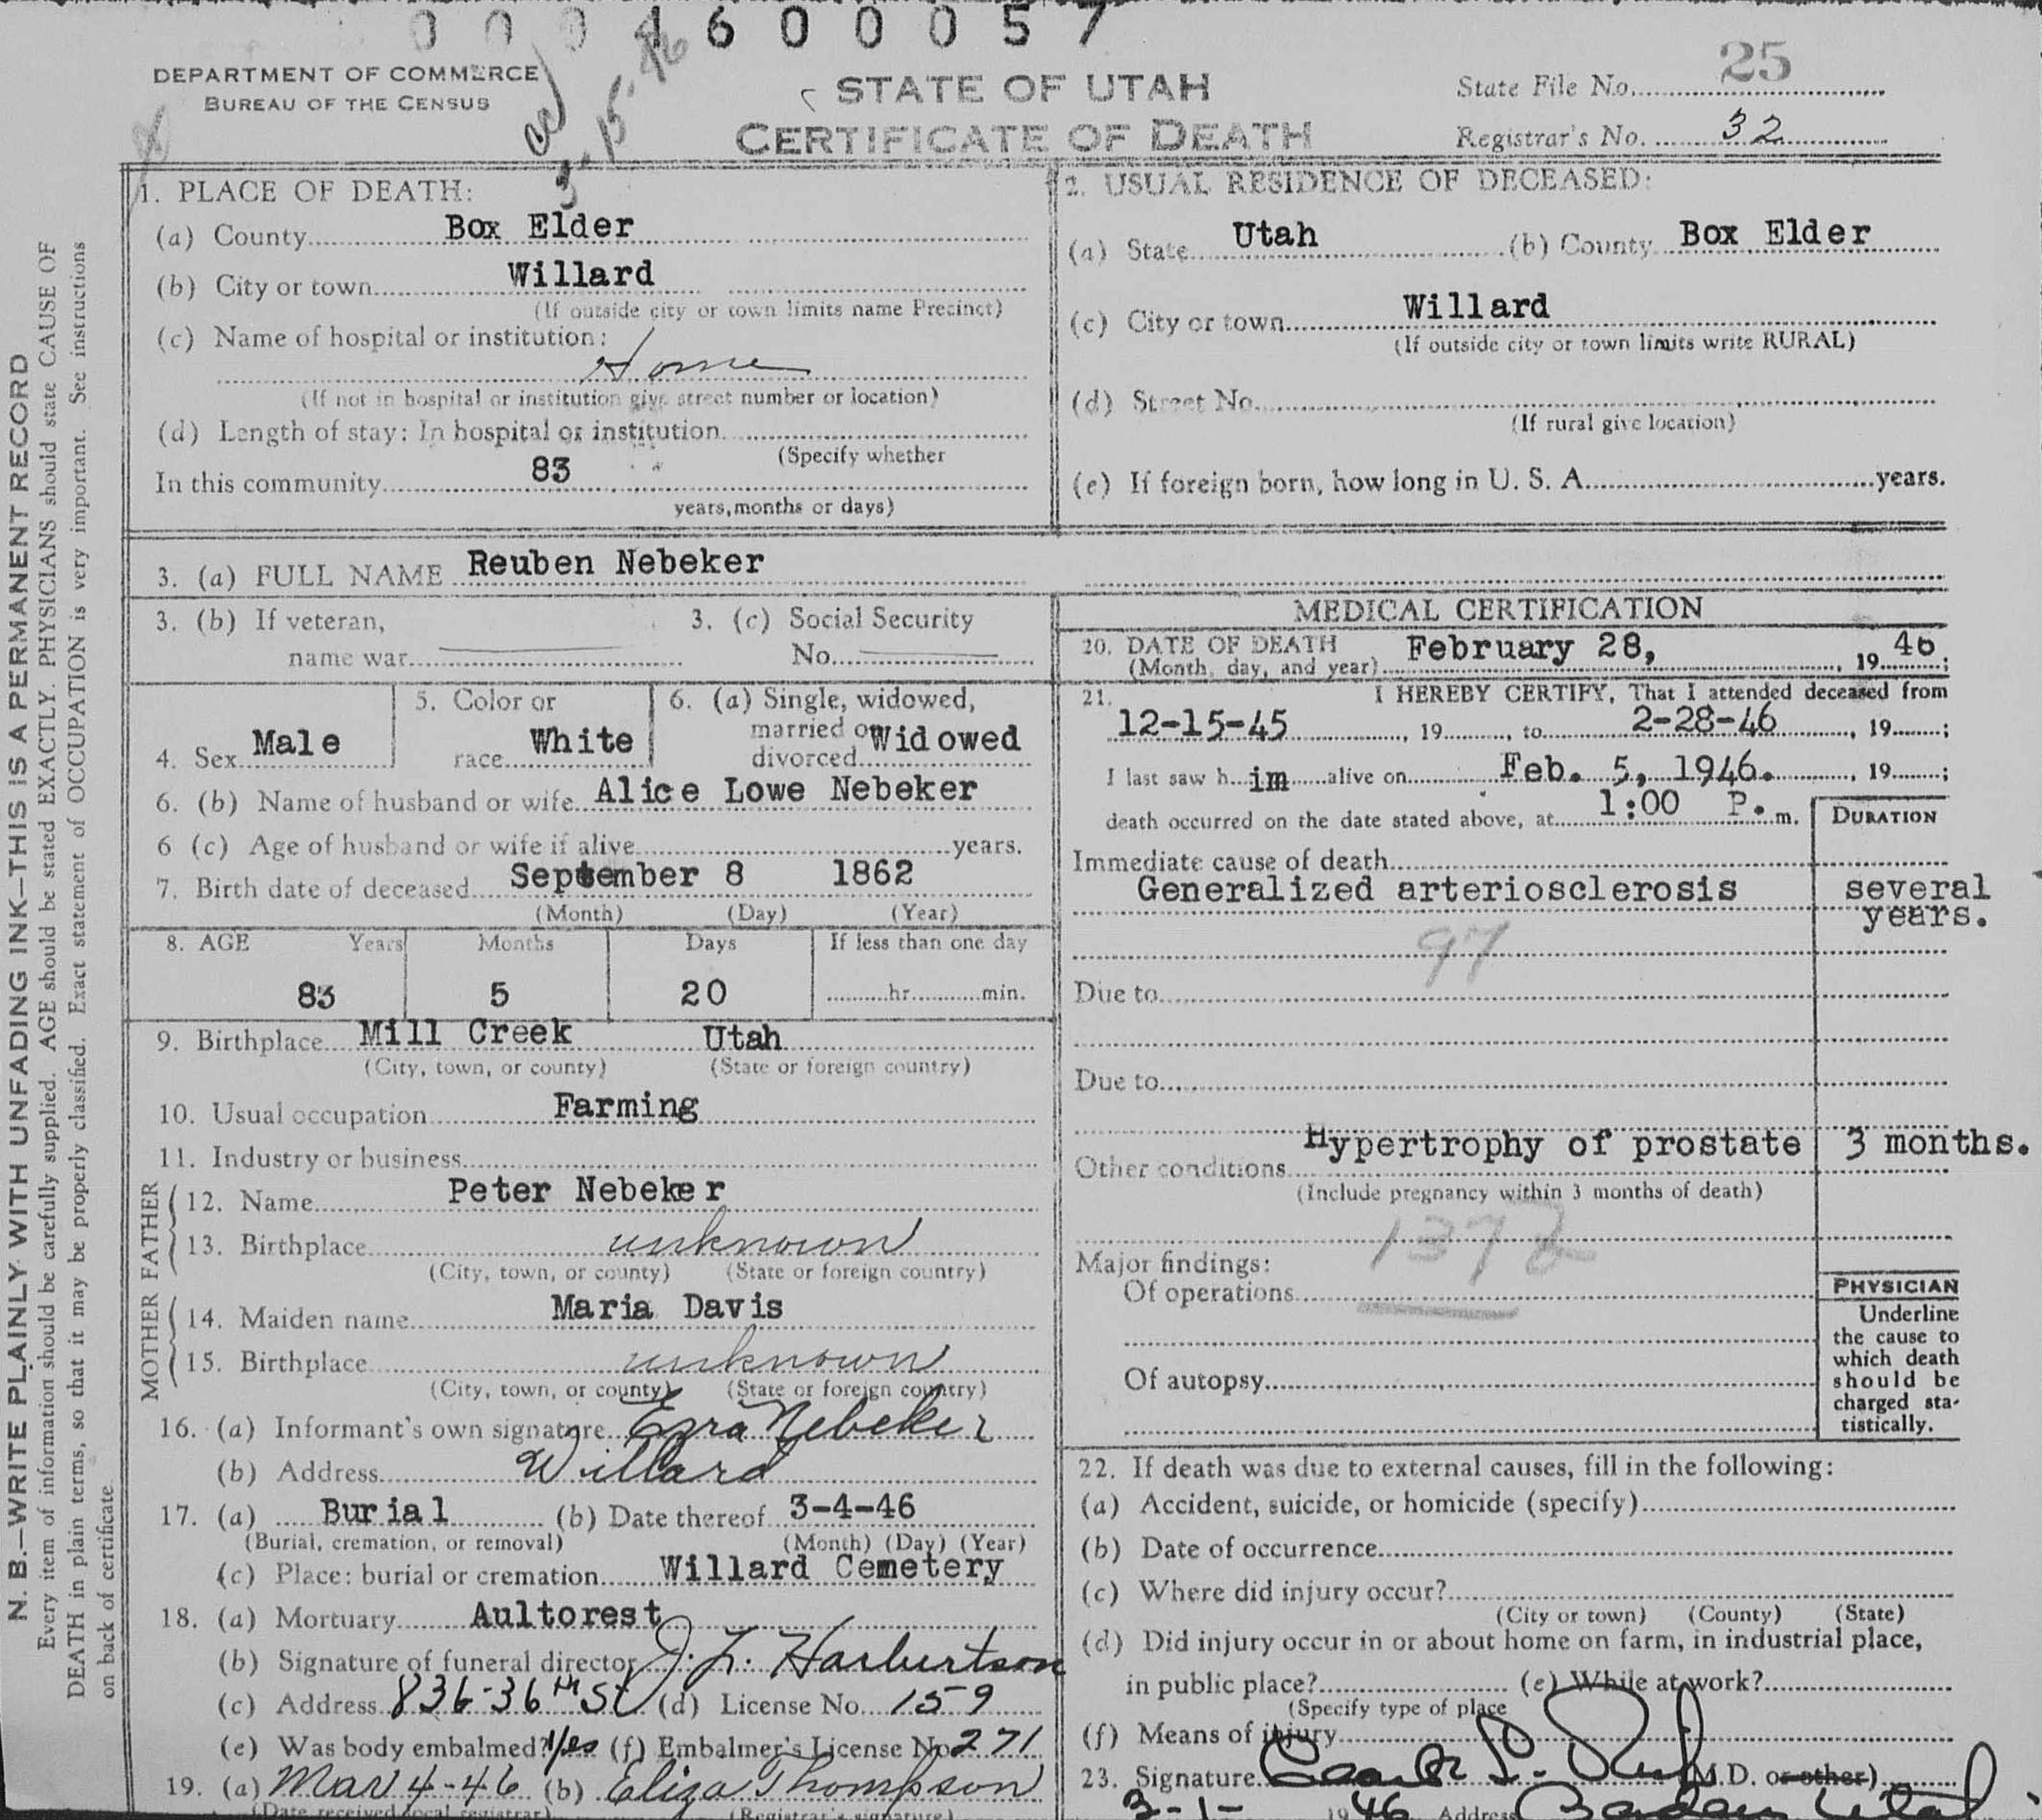 0 0 0 4 6 0 0 0 5 7
DEPARTMENT OF COMMERCE
BUREAU OF THE CENSUS
STATE OF UTAH
CERTIFICATE OF DEATH
State File No. 25
Registrar's No. 32
1. PLACE OF DEATH:
(a) County Box Elder
(b) City or town Willard
(If outside city or town limits name Precinct)
(c) Name of hospital or institution:
Home
(If not in hospital or institution give street number or location)
(d) Length of stay: In hospital or institution
(Specify whether
In this community 83
years, months or days)
2. USUAL RESIDENCE OF DECEASED:
(a) State Utah (b) County Box Elder
(c) City or town Willard
(If outside city or town limits write RURAL)
(d) Street No.
(If rural give location)
(e) If foreign born, how long in U. S. A. years.
3. (a) FULL NAME Reuben Nebeker
3. (b) If veteran, 3. (c) Social Security
name war No.
4. Sex Male 5. Color or race White 6. (a) Single, widowed, married or divorced Widowed
6. (b) Name of husband or wife Alice Lowe Nebeker
6 (c) Age of husband or wife if alive years.
7. Birth date of deceased September 8 1862
(Month) (Day) (Year)
8. AGE Years Months Days If less than one day
83 5 20 hr. min.
9. Birthplace Mill Creek Utah
(City, town, or county) (State or foreign country)
10. Usual occupation Farming
11. Industry or business
FATHER
12. Name Peter Nebeker
13. Birthplace unknown
(City, town, or county) (State or foreign country)
MOTHER
14. Maiden name Maria Davis
15. Birthplace unknown
(City, town, or county) (State or foreign country)
16. (a) Informant's own signature Ezra Nebeker
(b) Address Willard
17. (a) Burial (b) Date thereof 3-4-46
(Burial, cremation, or removal) (Month) (Day) (Year)
(c) Place: burial or cremation Willard Cemetery
18. (a) Mortuary Aultorest
(b) Signature of funeral director J. L. Harbertson
(c) Address 836-36th St (d) License No. 159
(e) Was body embalmed? Yes (f) Embalmer's License No. 271
19. (a) Mar 4-46 (b) Eliza Thompson
(Date received local registrar) (Registrar's signature)
MEDICAL CERTIFICATION
20. DATE OF DEATH February 28, 1946;
(Month, day, and year)
21. I HEREBY CERTIFY, That I attended deceased from
12-15-45, 19, to 2-28-46, 19;
I last saw him alive on Feb. 5, 1946., 19;
death occurred on the date stated above, at 1:00 P. m. DURATION
Immediate cause of death
Generalized arteriosclerosis several years.
97
Due to
Due to
Other conditions Hypertrophy of prostate 3 months.
(Include pregnancy within 3 months of death)
Major findings:
Of operations
Of autopsy
PHYSICIAN
Underline
the cause to
which death
should be
charged sta-
tistically.
22. If death was due to external causes, fill in the following:
(a) Accident, suicide, or homicide (specify)
(b) Date of occurrence
(c) Where did injury occur?
(City or town) (County) (State)
(d) Did injury occur in or about home on farm, in industrial place,
in public place? (e) While at work?
(Specify type of place
(f) Means of injury
23. Signature (M.D. or other)
3-1- 1946 Address
N. B.—WRITE PLAINLY WITH UNFADING INK—THIS IS A PERMANENT RECORD
Every item of information should be carefully supplied. AGE should be stated EXACTLY. PHYSICIANS should state CAUSE OF
DEATH in plain terms, so that it may be properly classified. Exact statement of OCCUPATION is very important. See instructions
on back of certificate.